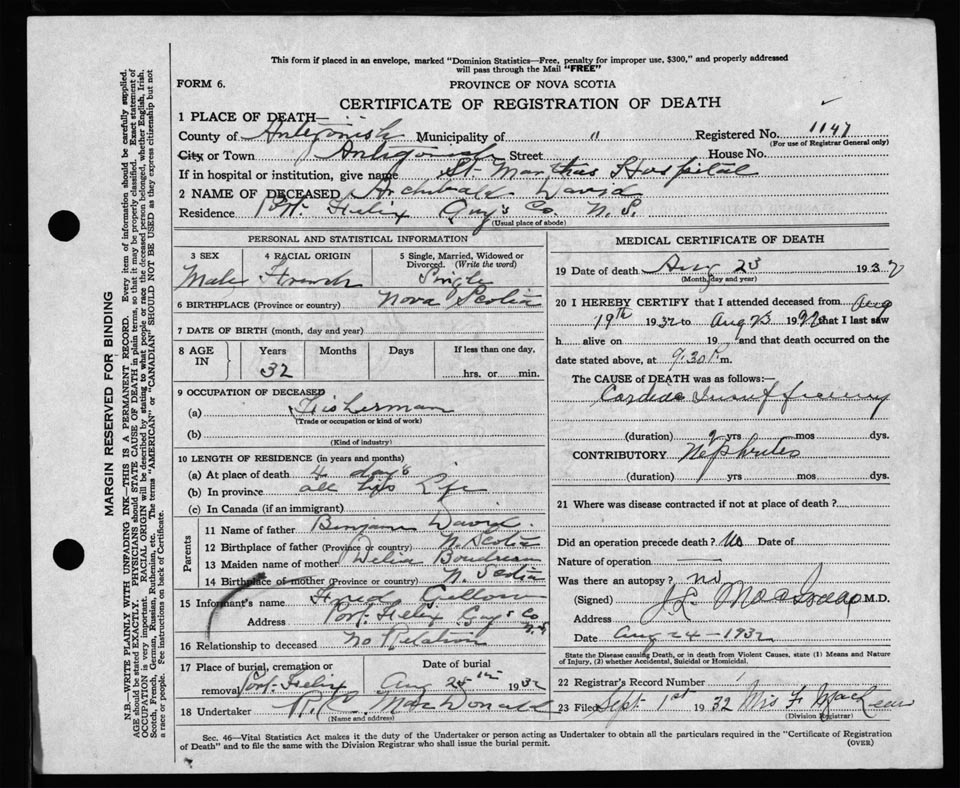 This form if placed in an envelope, marked "Dominion Statistics—Free, penalty for improper use, $300," and properly addressed
will pass through the Mail "FREE"
FORM 6.
PROVINCE OF NOVA SCOTIA
CERTIFICATE OF REGISTRATION OF DEATH
1 PLACE OF DEATH—
County of Antigonish Municipality of " Registered No. 1147
(For use of Registrar General only)
City or Town Antigonish Street House No.
If in hospital or institution, give name St. Marthas Hospital
2 NAME OF DECEASED Archibald David
Residence Port Felix Guy's Co. N. S.
(Usual place of abode)
PERSONAL AND STATISTICAL INFORMATION
3 SEX 4 RACIAL ORIGIN 5 Single, Married, Widowed or
Divorced. (Write the word)
Male French Single
6 BIRTHPLACE (Province or country) Nova Scotia
7 DATE OF BIRTH (month, day and year)
8 AGE IN Years Months Days If less than one day,
32 hrs. or min.
9 OCCUPATION OF DECEASED
(a) Fisherman
(Trade or occupation or kind of work)
(b)
(Kind of industry)
10 LENGTH OF RESIDENCE (in years and months)
(a) At place of death 4 days
(b) In province all his Life
(c) In Canada (if an immigrant)
Parents
11 Name of father Benjamin David
12 Birthplace of father (Province or country) N. Scotia
13 Maiden name of mother Delia Boudreau
14 Birthplace of mother (Province or country) N. Scotia
15 Informant's name Fred
Address Port Felix Guy's Co N.S.
16 Relationship to deceased no Relation
17 Place of burial, cremation or Date of burial
removal Port Felix Aug 25th 1932
18 Undertaker MacDonald
(Name and address)
MEDICAL CERTIFICATE OF DEATH
19 Date of death Aug 23 1932
(Month, day and year)
20 I HEREBY CERTIFY that I attended deceased from Aug
19th 1932 to Aug 23 19 that I last saw
h alive on 19 and that death occurred on the
date stated above, at 9.30 P.m.
The CAUSE of DEATH was as follows:—
Cardiac Insufficiency
(duration) yrs mos dys.
CONTRIBUTORY Nephritis
(duration) yrs mos dys.
21 Where was disease contracted if not at place of death?
Did an operation precede death? No Date of
Nature of operation
Was there an autopsy? no
(Signed) J. L. MacIsaac M.D.
Address
Date Aug 24-1932
State the Disease causing Death, or in death from Violent Causes, state (1) Means and Nature
of Injury, (2) whether Accidental, Suicidal or Homicidal.
22 Registrar's Record Number
23 Filed Sept 1st 1932 Mrs F MacLean
(Division Registrar)
Sec. 46—Vital Statistics Act makes it the duty of the Undertaker or person acting as Undertaker to obtain all the particulars required in the "Certificate of Registration
of Death" and to file the same with the Division Registrar who shall issue the burial permit.
(OVER)
MARGIN RESERVED FOR BINDING
N.B.—WRITE PLAINLY WITH UNFADING INK—THIS IS A PERMANENT RECORD. Every item of information should be carefully supplied.
AGE should be stated EXACTLY. PHYSICIANS should STATE CAUSE OF DEATH in plain terms, so that it may be properly classified. Exact statement of
OCCUPATION is very important. RACIAL ORIGIN will be described by stating to what people or race the deceased person belonged, whether English, Irish,
Scotch, French, German, Russian, Ruthenian, etc. The terms "AMERICAN" or "CANADIAN" SHOULD NOT BE USED as they express citizenship but not
a race or people. See instructions on back of Certificate.